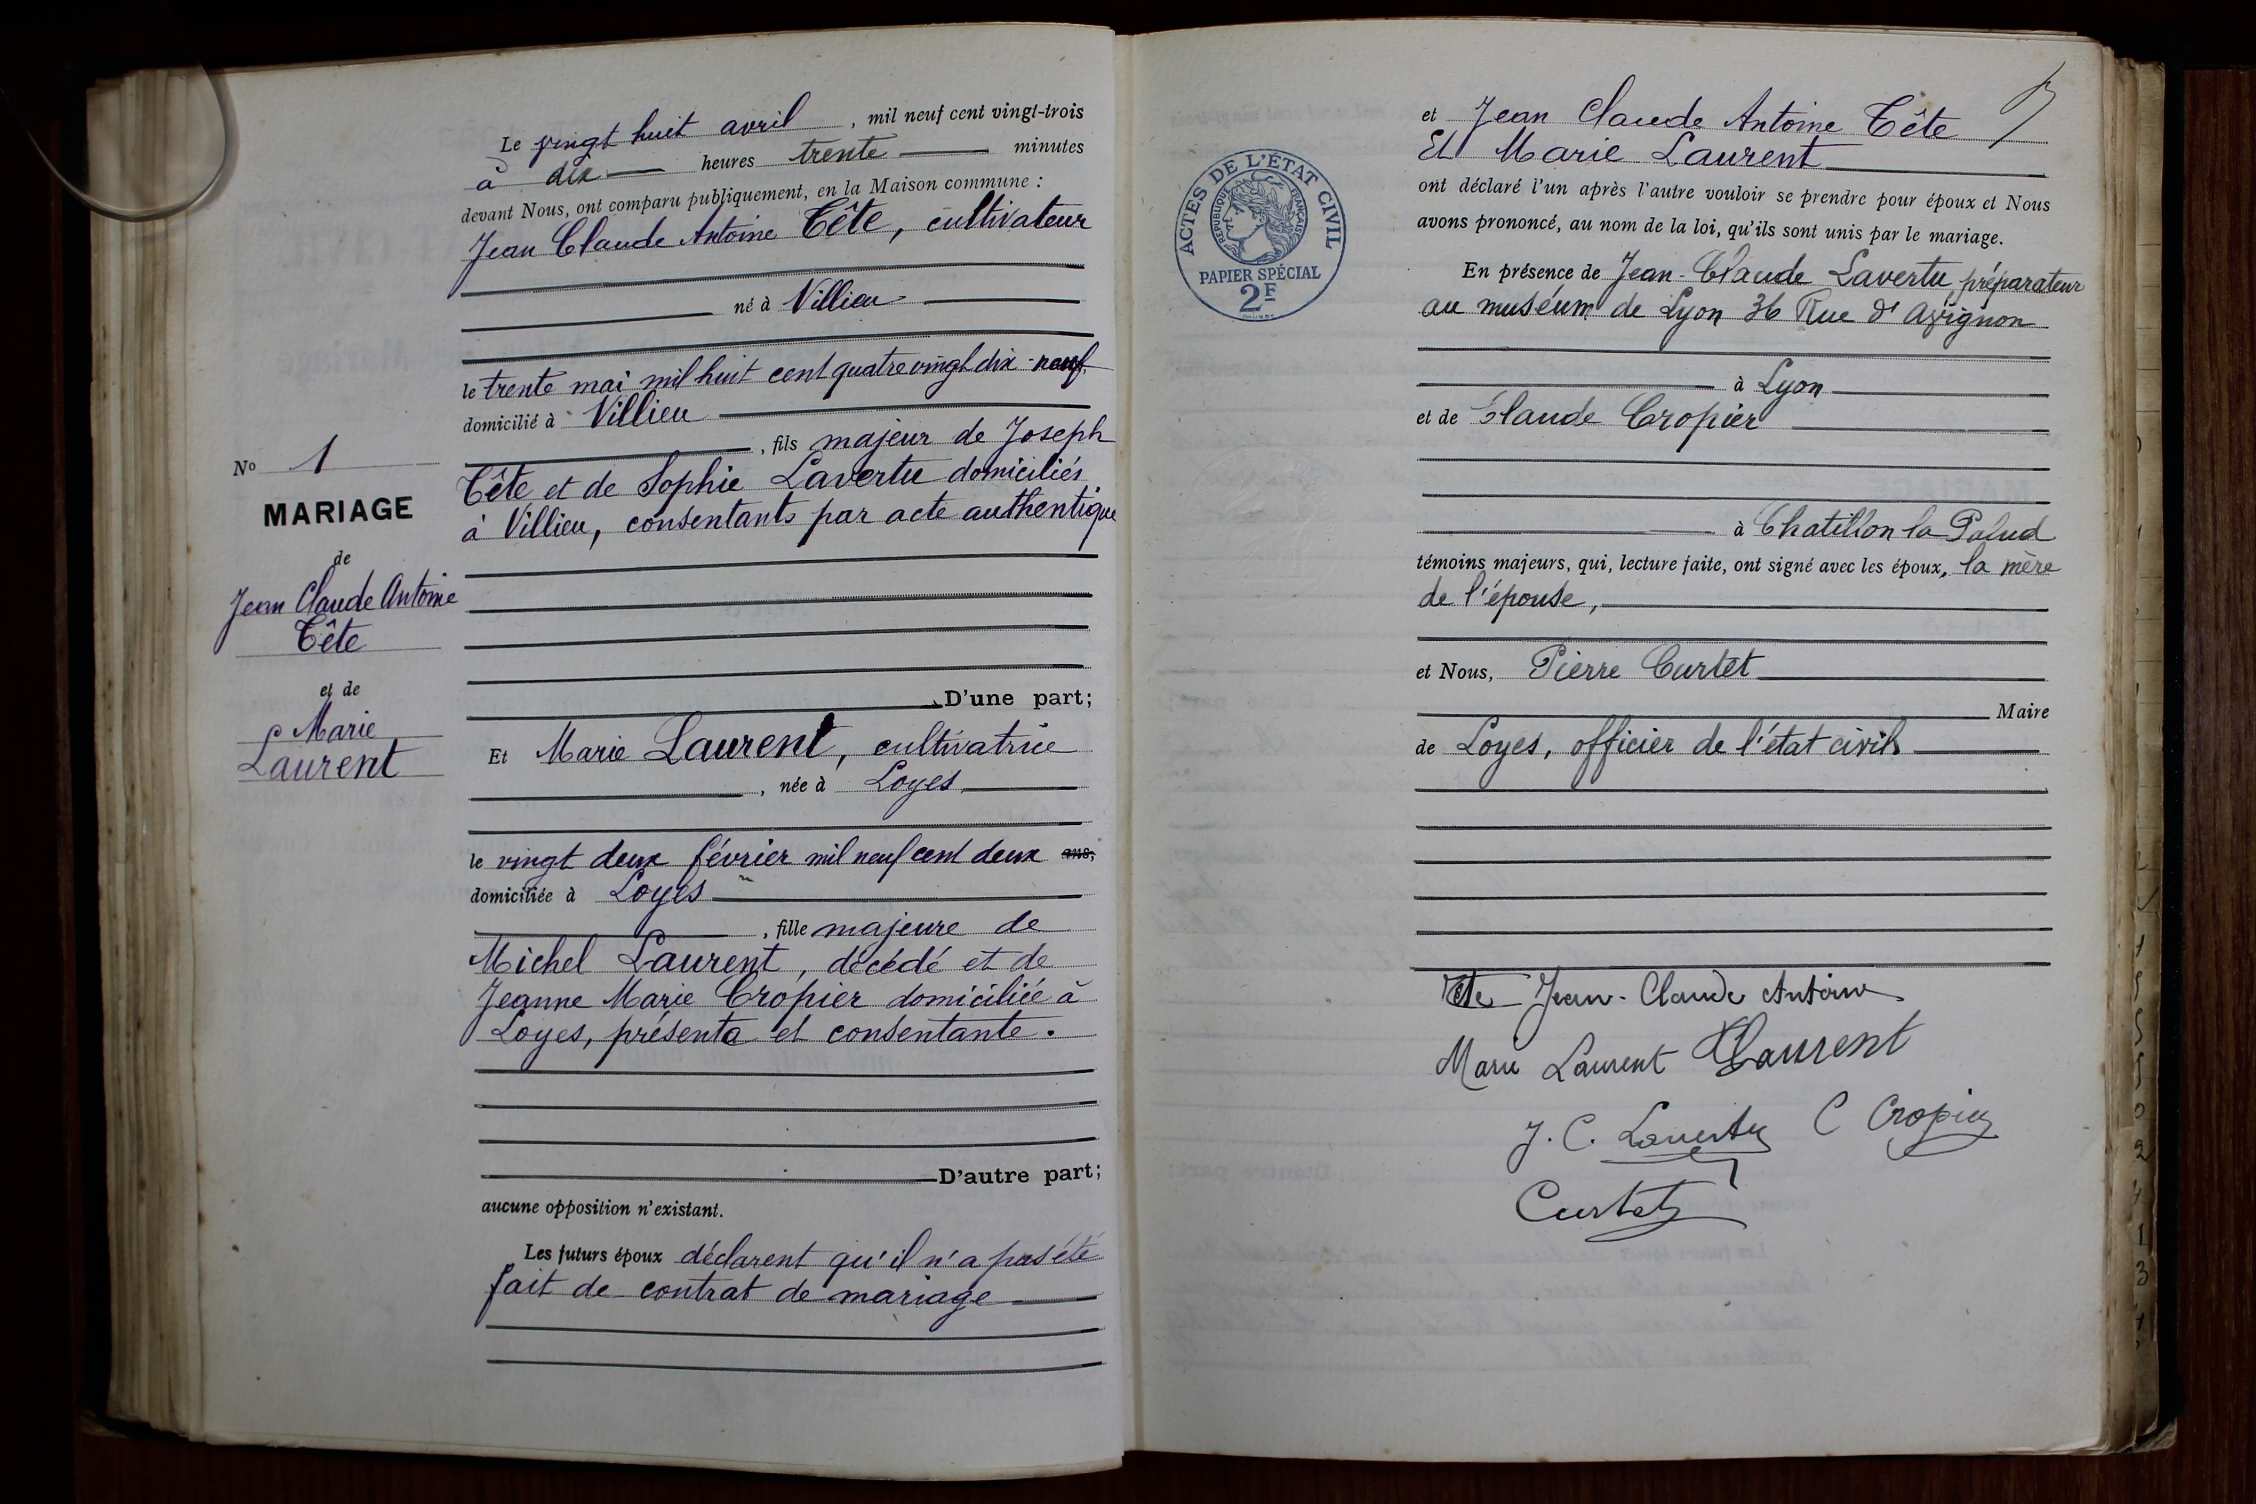 Le vingt huit avril, mil neuf cent vingt-trois
à dix heures trente minutes
devant Nous, ont comparu publiquement, en la Maison commune :
Jean Claude Antoine Tête, cultivateur
né à Villieu
le trente mai mil huit cent quatre vingt dix-neuf
domicilié à Villieu
, fils majeur de Joseph
Tête et de Sophie Lavertu domiciliés
à Villieu, consentants par acte authentique
No 1
MARIAGE
de
Jean Claude Antoine
Tête
et de
Marie
Laurent
D'une part;
Et Marie Laurent, cultivatrice
, née à Loyes
le vingt deux février mil neuf cent deux ans,
domiciliée à Loyes
, fille majeure de
Michel Laurent, décédé et de
Jeanne Marie Cropier domiciliée à
Loyes, présenta et consentante.
D'autre part;
aucune opposition n'existant.
Les futurs époux déclarent qu'il n'a pas été
fait de contrat de mariage
ACTES DE L'ÉTAT CIVIL
RÉPUBLIQUE FRANÇAISE
PAPIER SPÉCIAL
2F
et Jean Claude Antoine Tête
Et Marie Laurent
ont déclaré l'un après l'autre vouloir se prendre pour époux et Nous
avons prononcé, au nom de la loi, qu'ils sont unis par le mariage.
En présence de Jean-Claude Lavertu, préparateur
au muséum de Lyon 36 Rue d'Avignon
à Lyon
et de Claude Cropier
à Chatillon la Palud
témoins majeurs, qui, lecture faite, ont signé avec les époux, la mère
de l'épouse,
et Nous, Pierre Curtet
Maire
de Loyes, officier de l'état civil
Tête Jean-Claude Antoine
Marie Laurent Laurent
J. C. Lavertu C Cropier
Curtet